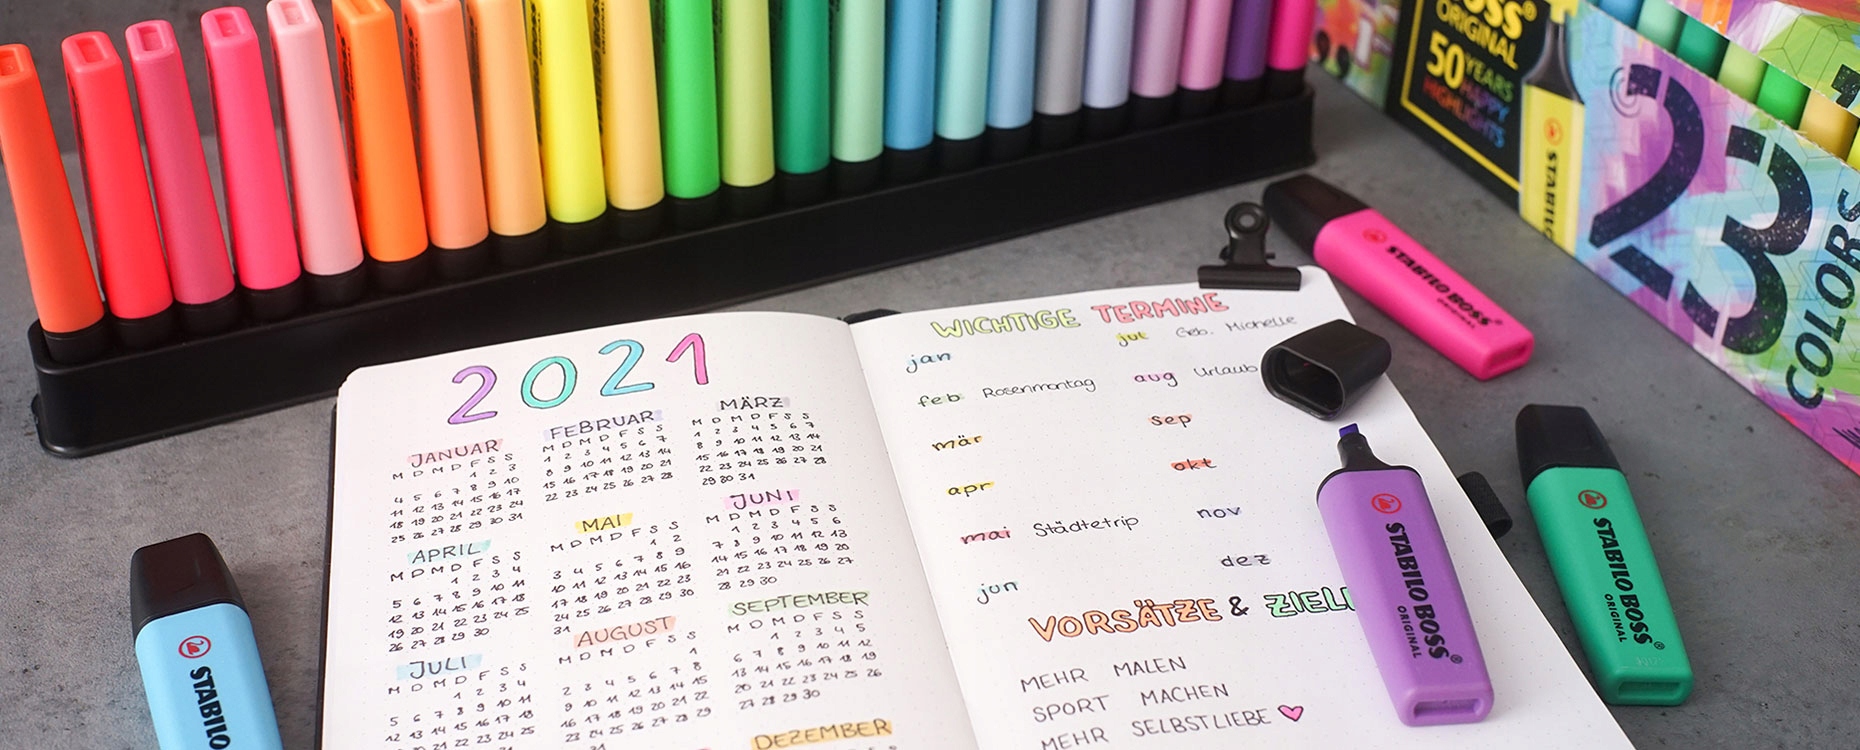 BOSS®
ORIGINAL
50 YEARS
HAPPY
HIGHLIGHTS
STABILO
23
COLORS
STABILO BOSS®
ORIGINAL
2021
JANUAR
M D M D F S S
1 2 3
4 5 6 7 8 9 10
11 12 13 14 15 16 17
18 19 20 21 22 23 24
25 26 27 28 29 30 31
FEBRUAR
M D M D F S S
1 2 3 4 5 6 7
8 9 10 11 12 13 14
15 16 17 18 19 20 21
22 23 24 25 26 27 28
MÄRZ
M D M D F S S
1 2 3 4 5 6 7
8 9 10 11 12 13 14
15 16 17 18 19 20 21
22 23 24 25 26 27 28
29 30 31
APRIL
M D M D F S S
1 2 3 4
5 6 7 8 9 10 11
12 13 14 15 16 17 18
19 20 21 22 23 24 25
26 27 28 29 30
MAI
M D M D F S S
1 2
3 4 5 6 7 8 9
10 11 12 13 14 15 16
17 18 19 20 21 22 23
24 25 26 27 28 29 30
31
JUNI
M D M D F S S
1 2 3 4 5 6
7 8 9 10 11 12 13
14 15 16 17 18 19 20
21 22 23 24 25 26 27
28 29 30
JULI
M D M D F S S
1 2 3 4
5 6 7 8 9 10 11
12 13 14 15 16 17 18
AUGUST
M D M D F S S
1
2 3 4 5 6 7 8
9 10 11 12 13 14 15
SEPTEMBER
M D M D F S S
1 2 3 4 5
6 7 8 9 10 11 12
13 14 15 16 17 18 19
20 21 22 23 24 25 26
27 28 29 30
DEZEMBER
WICHTIGE TERMINE
jan
feb Rosenmontag
mär
apr
mai Städtetrip
jun
jul Geb. Michelle
aug Urlaub
sep
okt
nov
dez
VORSÄTZE & ZIELE
MEHR MALEN
SPORT MACHEN
MEHR SELBSTLIEBE
STABILO BOSS®
ORIGINAL
STABILO BOSS®
ORIGINAL
STABILO